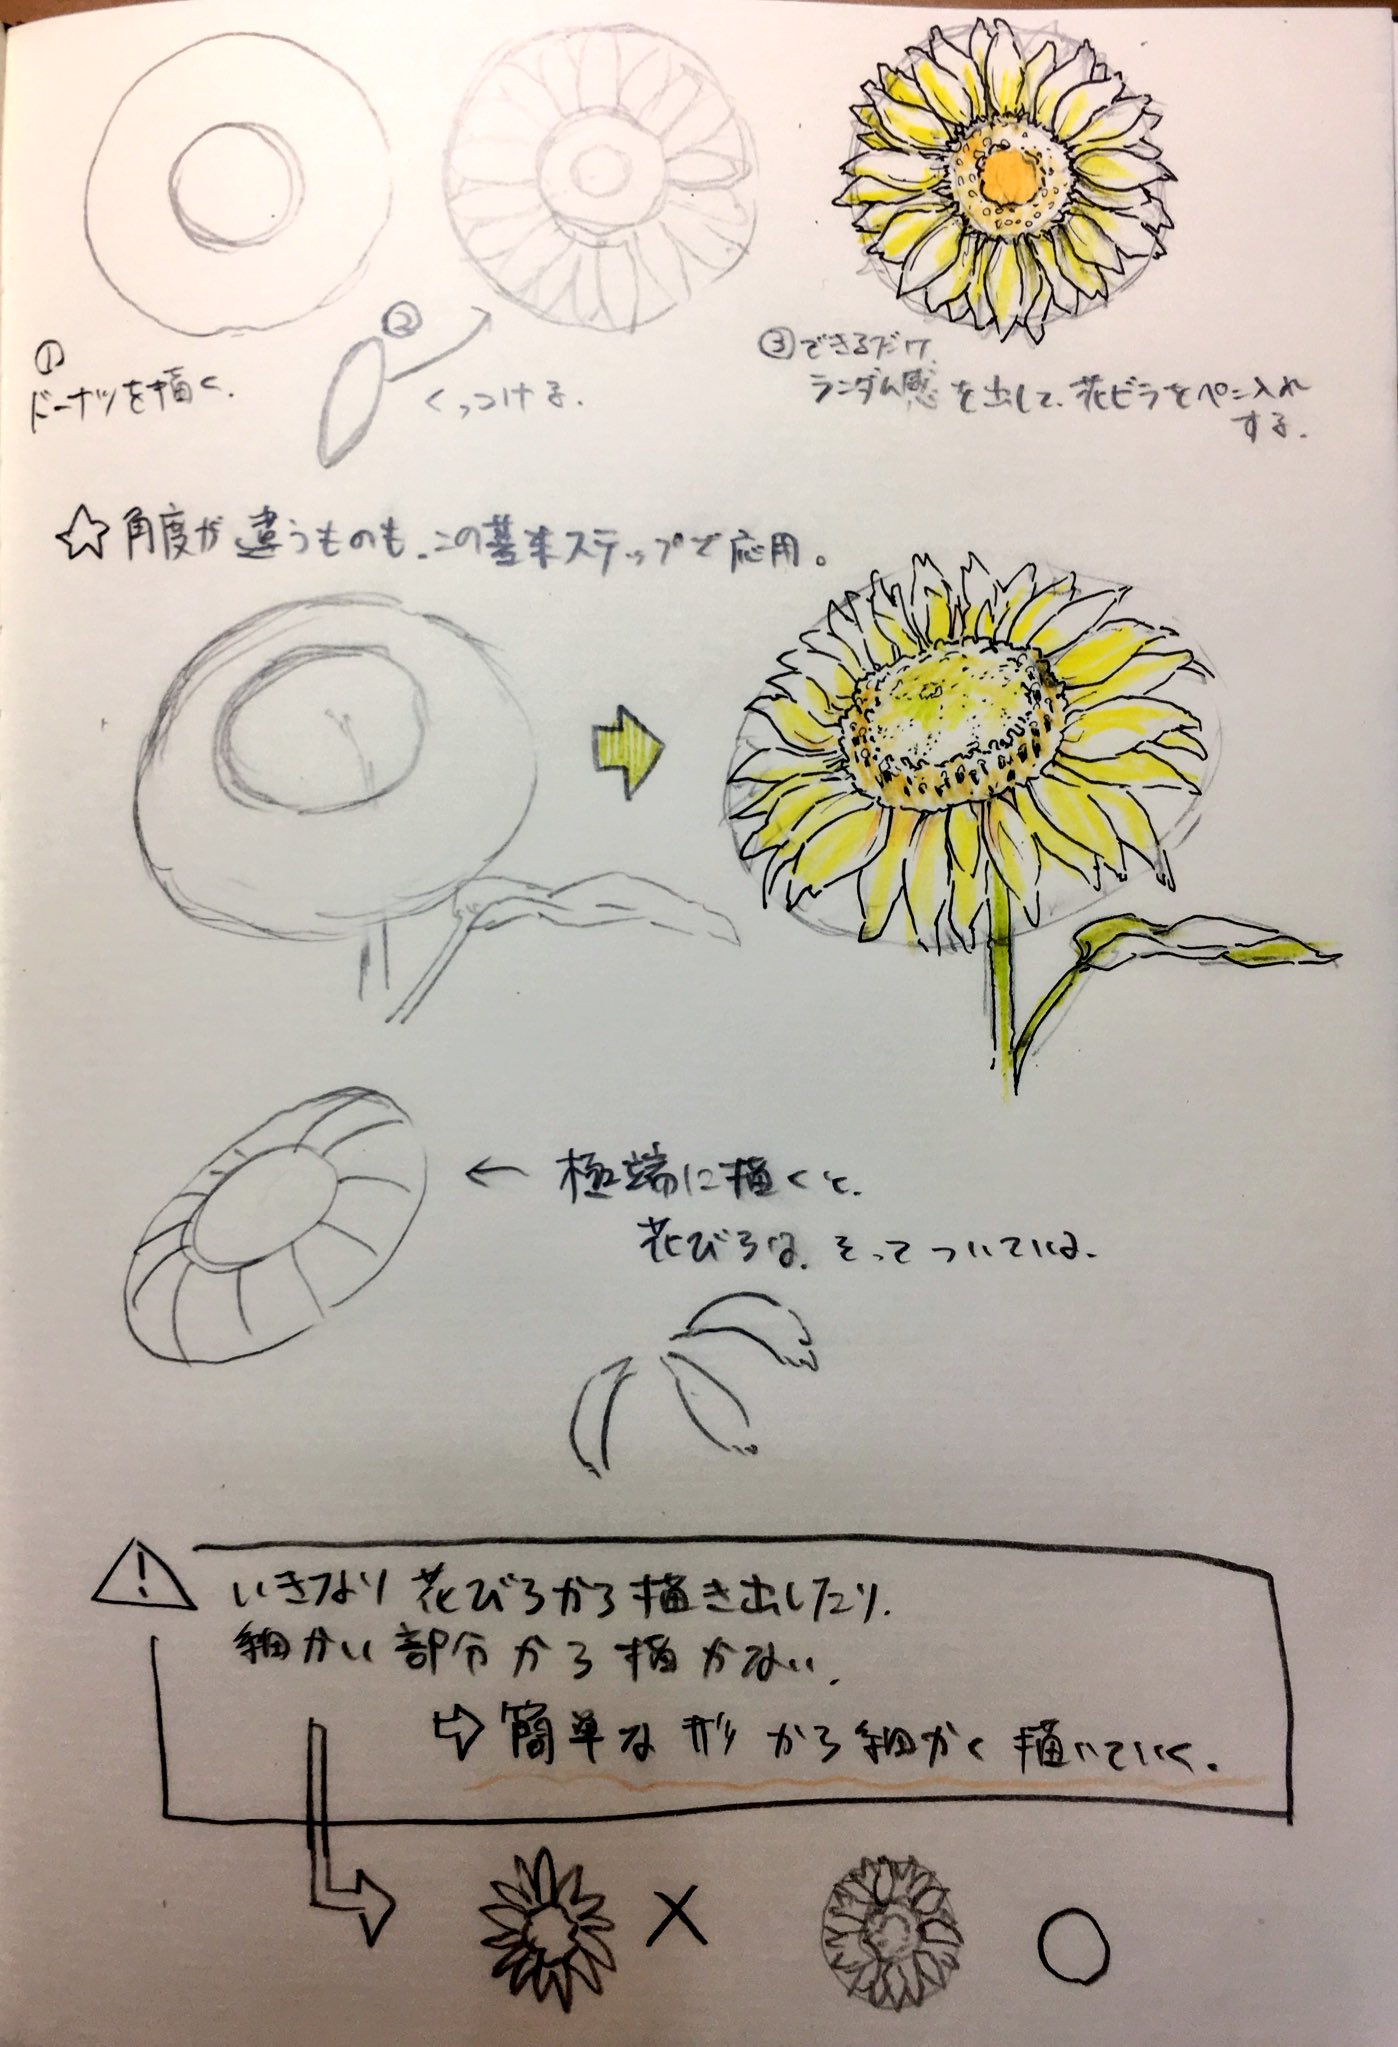 ①
ドーナツを描く.
②
くっつける.
③できるだけ
ランダム感を出して、花ビラをペン入れ
する.
☆角度が違うものも、この基本ステップで応用。
← 極端に描くと、
花びらは、そってついている.
! いきなり花びらから描き出したり、
細かい部分から描かない.
⇨簡単な形から細かく描いていく.
× ○